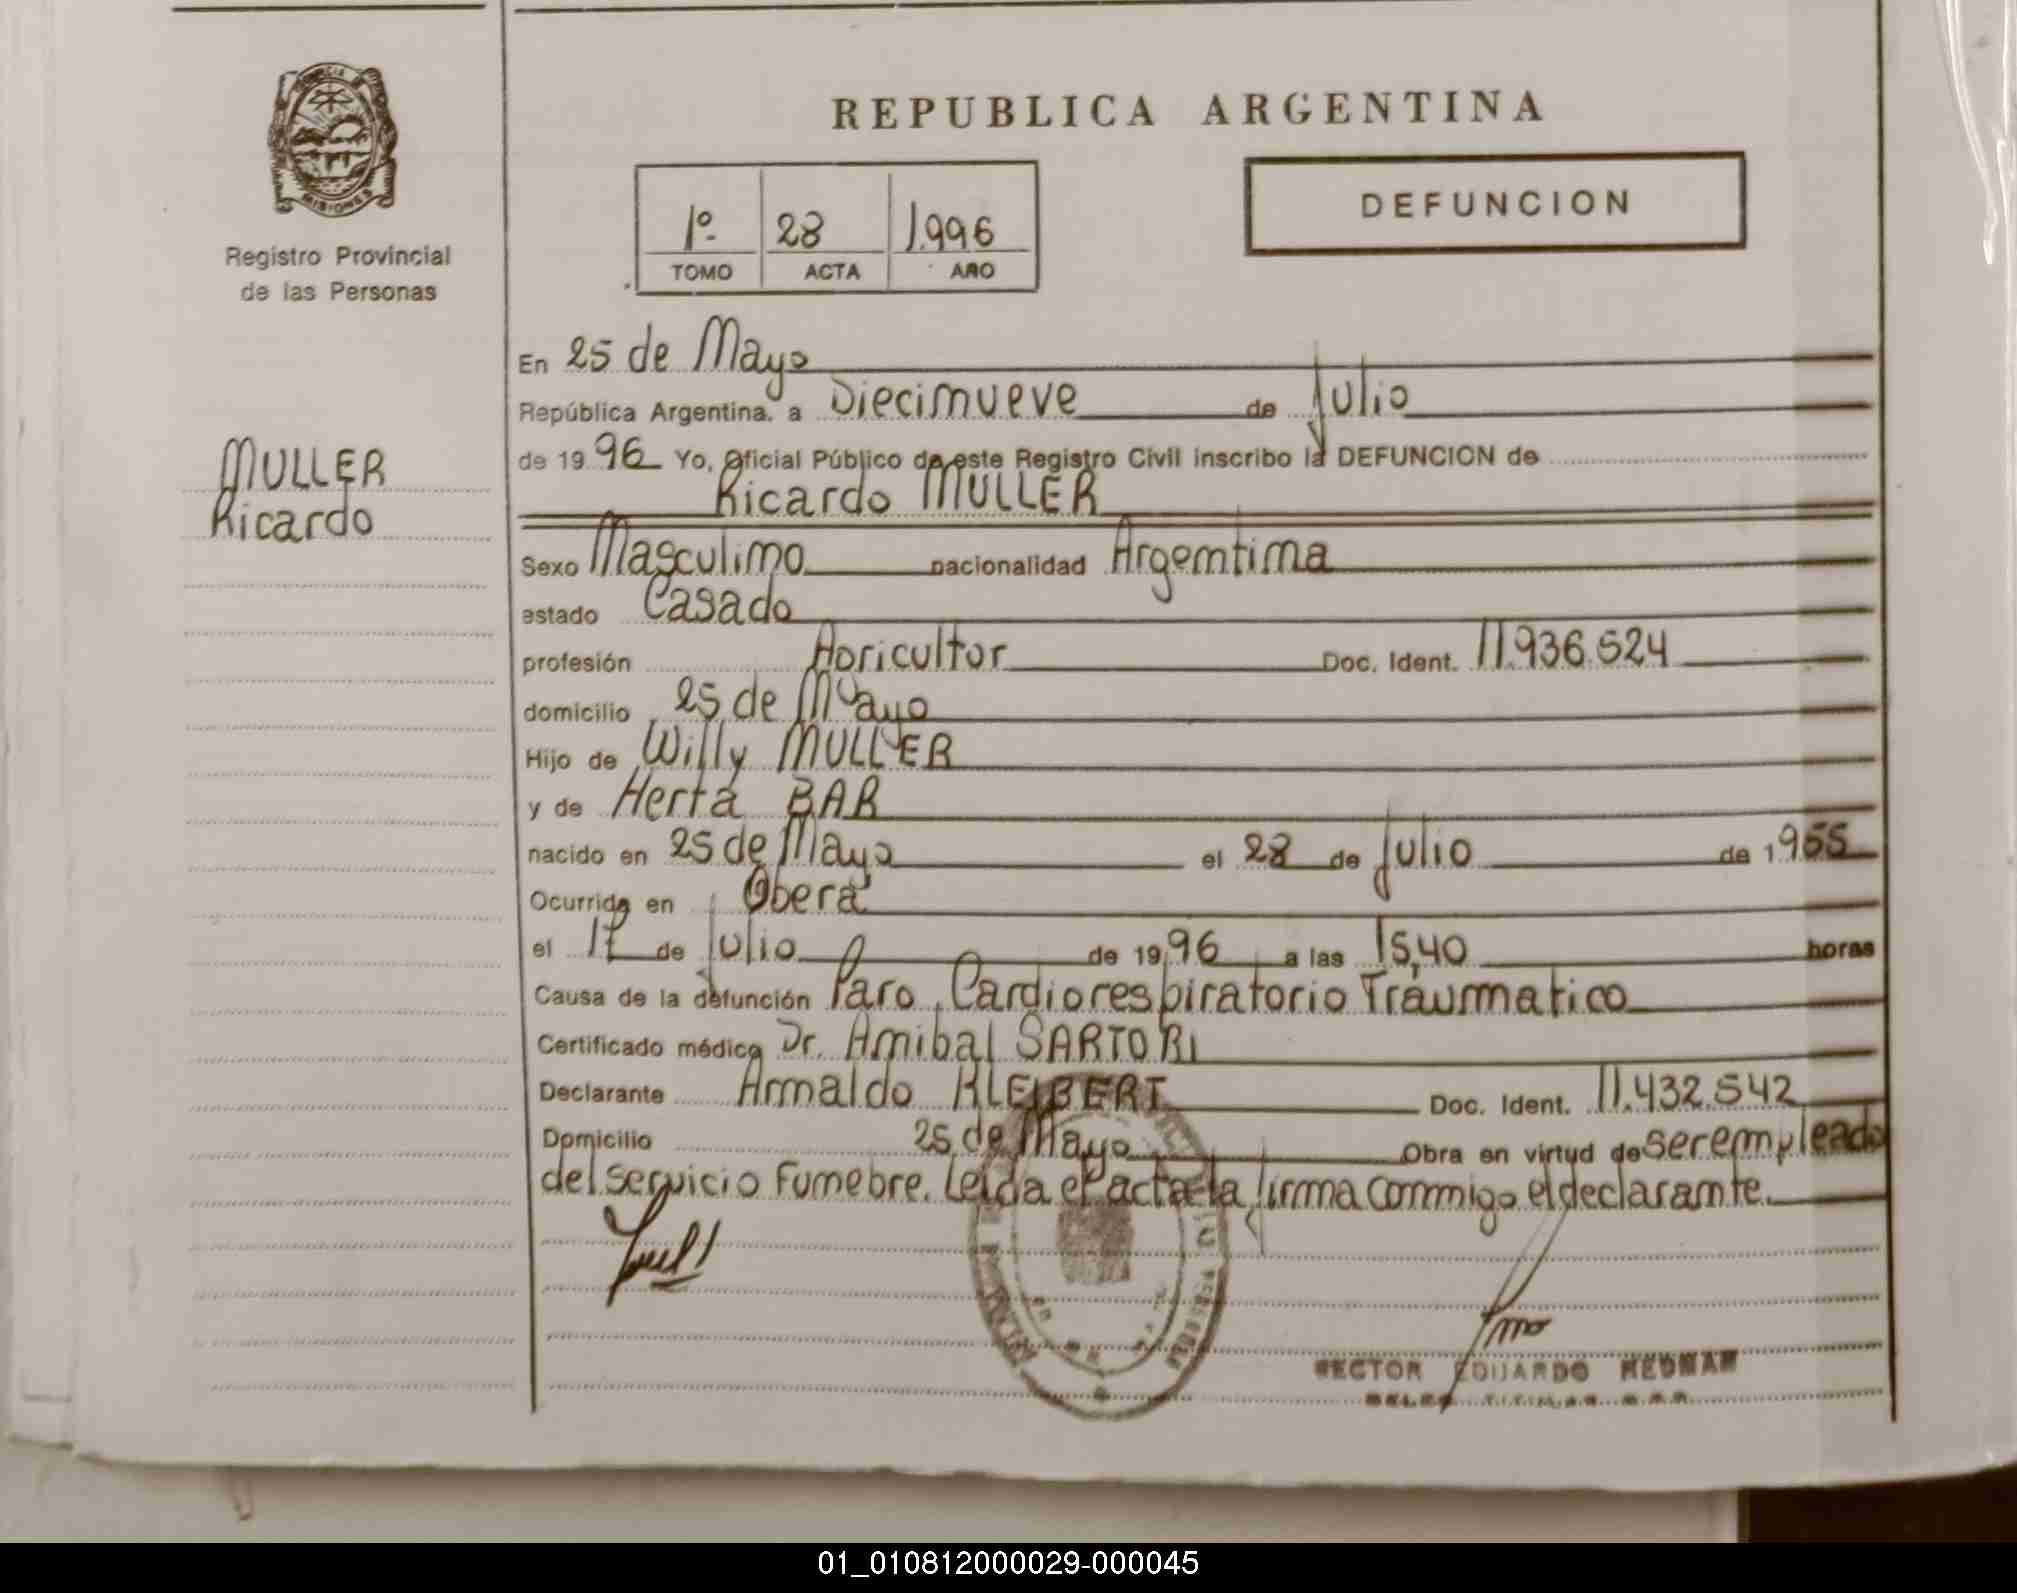 REPUBLICA ARGENTINA
DEFUNCION
PROVINCIA DE
MISIONES
Registro Provincial
de las Personas
1º 28 1.996
TOMO ACTA AÑO
MULLER
Ricardo
En 25 de Mayo
República Argentina, a Diecinueve de Julio
de 19 96 Yo, Oficial Público de este Registro Civil inscribo la DEFUNCION de
Ricardo MULLER
Sexo Masculino nacionalidad Argentina
estado Casado
profesión Agricultor Doc. Ident. 11.936.524
domicilio 25 de Mayo
Hijo de Willy MULLER
y de Herta BAR
nacido en 25 de Mayo el 28 de Julio de 1955
Ocurrida en Oberá
el 17 de Julio de 19 96 a las 15,40 horas
Causa de la defunción Paro Cardiorespiratorio Traumatico
Certificado médico Dr. Anibal SARTORI
Declarante Arnaldo KLEIBERT Doc. Ident. 11.432.542
Domicilio 25 de Mayo Obra en virtud de ser empleado
del servicio Funebre. Leida el acta la firma conmigo el declarante.
HECTOR EDUARDO
01_010812000029-000045